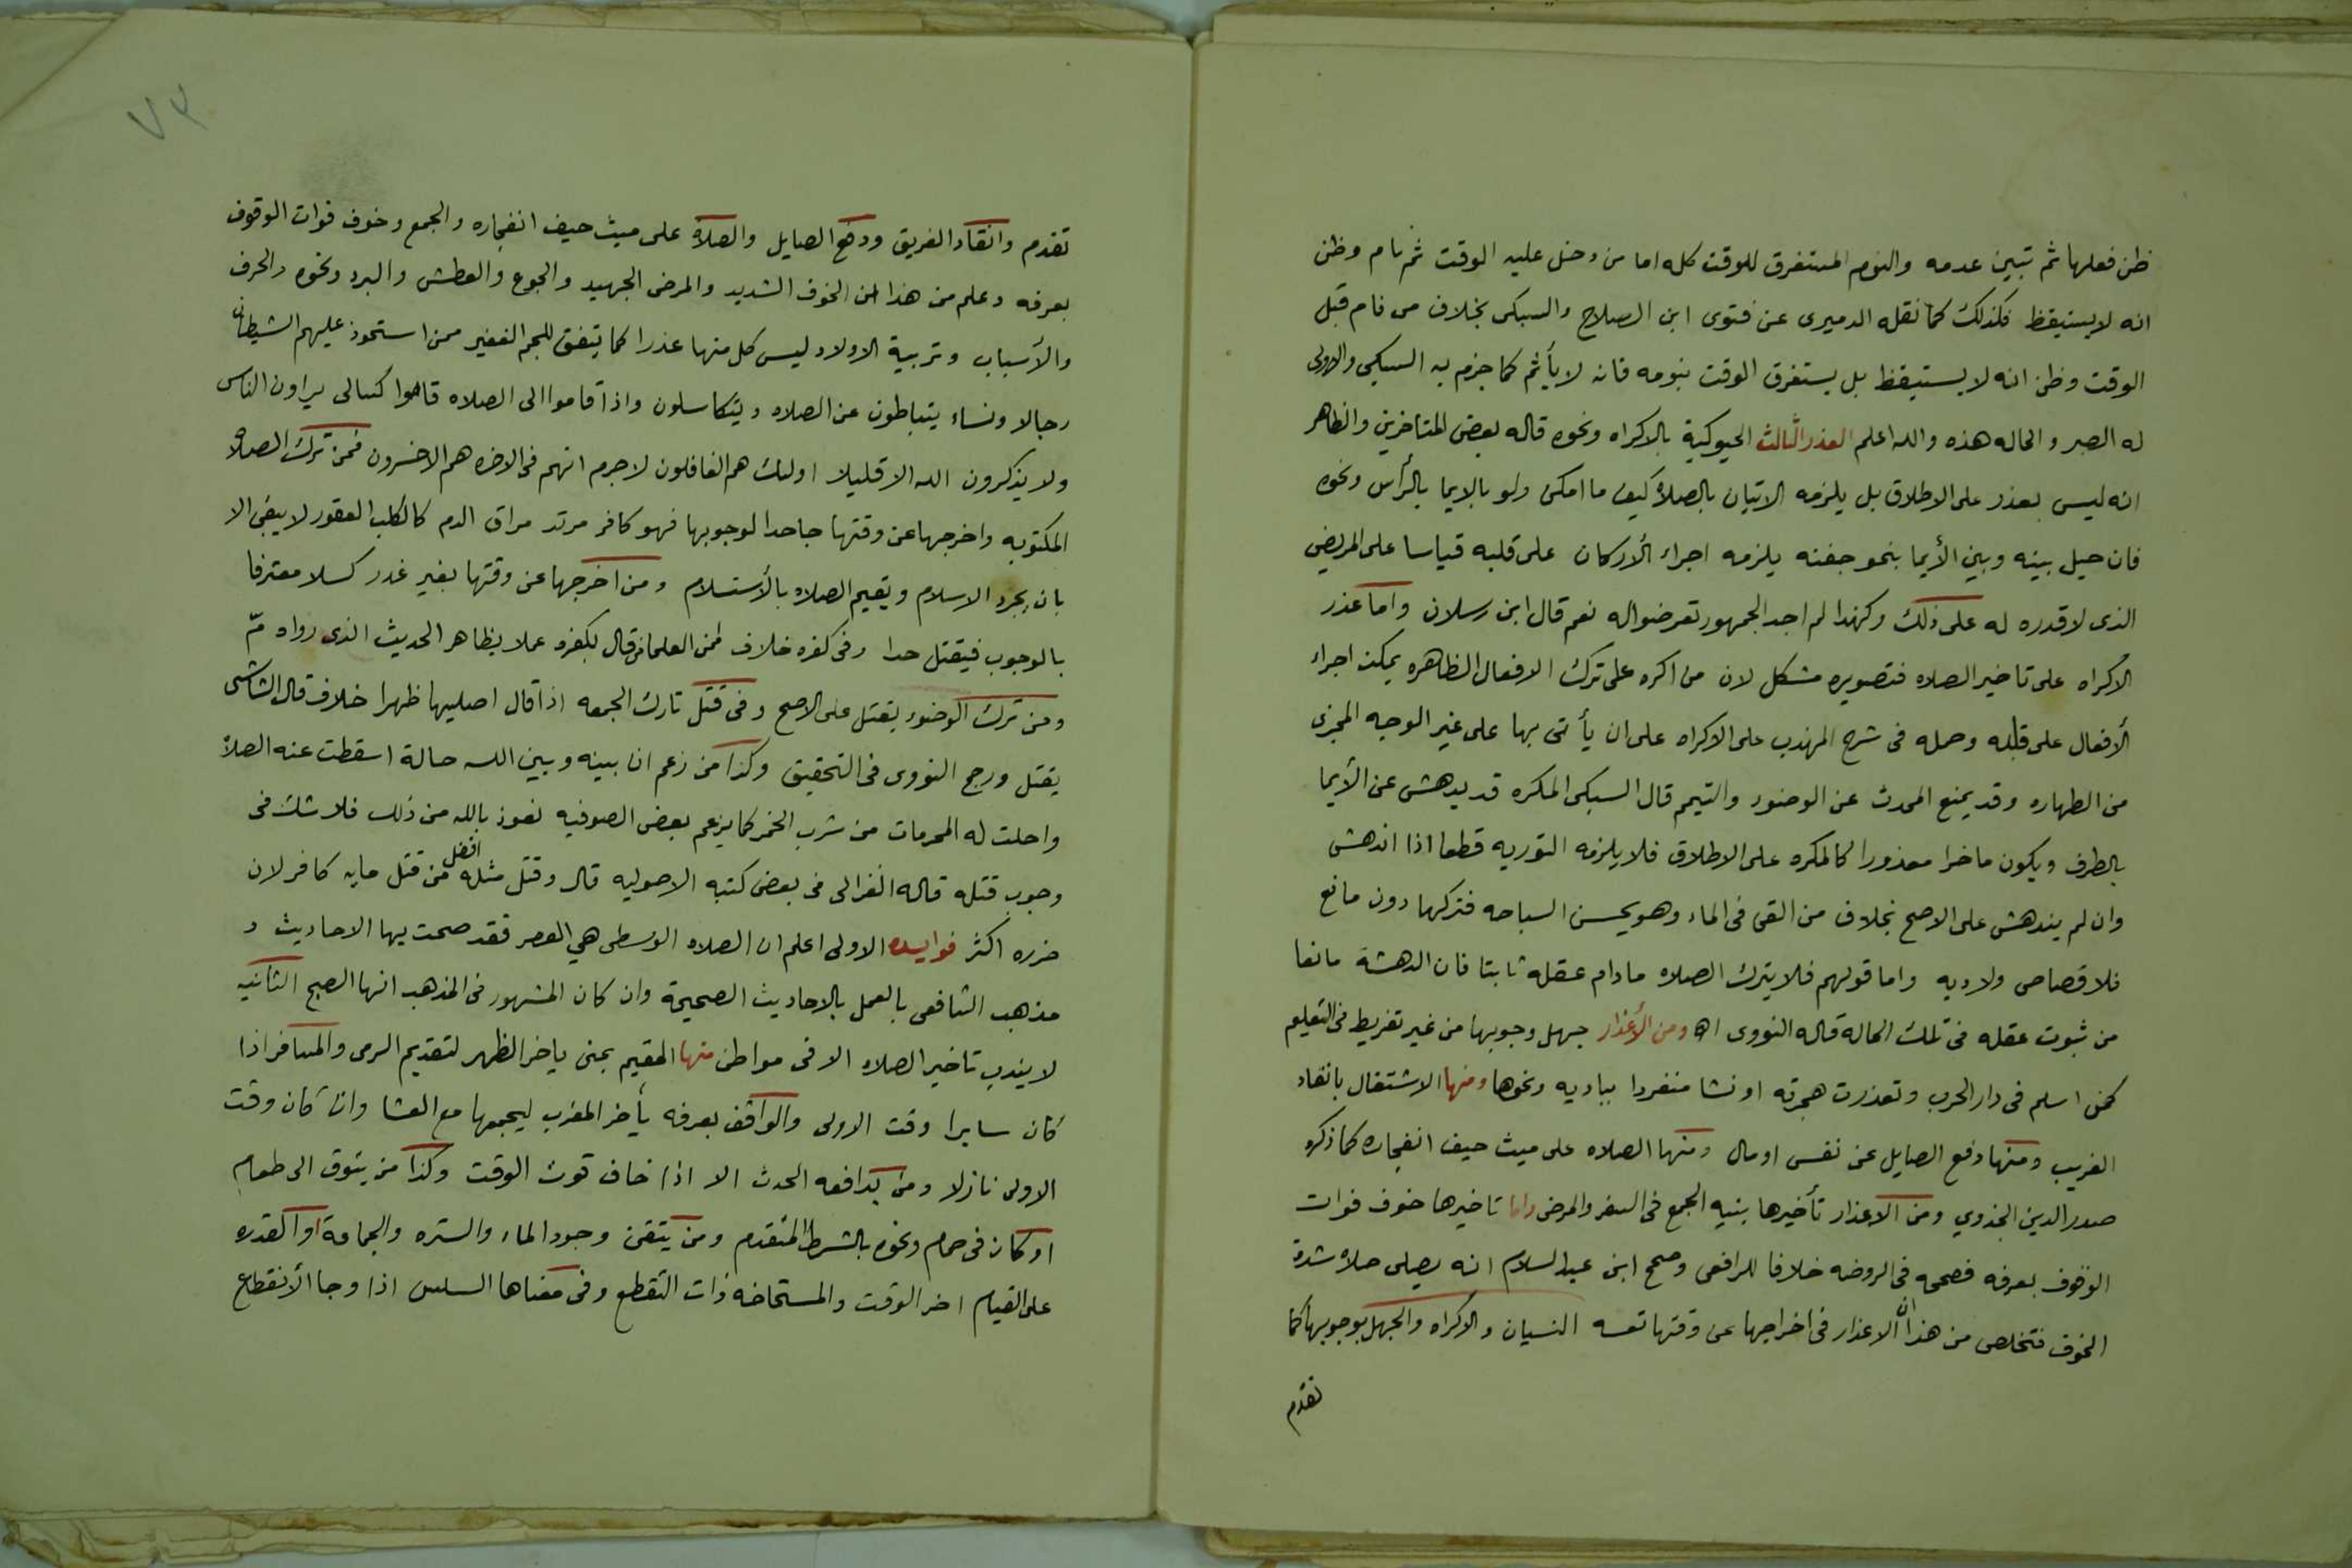 ظن فعلها ثم تبين عدمه والنوم المستغرق للوقت كله اما من دخل عليه الوقت ثم نام وظن
انه لا يستيقظ فكذلك كما نقله الدميرى عن فتوى ابن الصلاح والسبكى بخلاف من نام قبل
الوقت وظن انه لا يستيقظ بل يستغرق الوقت بنومه فانه لا يأثم كما جزم به السبكي والاولى
له الصبر والحاله هذه والله اعلم العذر الثالث بالاكراه ونحوه قاله بعض المتاخرين والظاهر
انه ليس بعذر على الاطلاق بل يلزمه الاتيان بالصلاة كيف ما امكن ولو بالايما بالرأس ونحوه
فان حيل بينه وبين الأيما بنحو جفنه يلزمه اجراء الأركان على قلبه قياسا على المريض
الذى لا قدره له على ذلك وكهذا لم اجد الجمهور تعرضوا له نعم قال ابن رسلان واما عذر
الاكراه على تاخير الصلاه فتصويره مشكل لان من اكره على ترك الافعال الظاهره يمكن اجراء
الأفعال على قلبه وحمله فى شرح المهذب على الاكراه على ان يأتى بها على غير الوجه المجزى
من الطهاره وقد يمنع المحدث عن الوضوء والتيمم قال السبكى المكره قد يدهش عن الأيما
بالطرف ويكون ماخرا معذورا كالمكره على الاطلاق فلا يلزمه التوريه قطعا اذا اندهش
وان لم يندهش على الاصح بخلاف من القى فى الماء وهو يحسن السباحه فتركها دون مانع
فلا قصاص ولا ديه واما قولهم فلا يترك الصلاه مادام عقله ثابتا فان الدهشة مانعا
من ثبوت عقله فى تلك الحالة قاله النووى اه ومن الأعذار جهل وجوبها من غير تفريط فى التعليم
كمن اسلم فى دار الحرب وتعذرت هجرته او نشا منفردا بباديه ونحوها ومنها الاشتغال بانقاد
الغريب ومنها دفع الصايل عن نفس او مال ومنها الصلاه على ميث حيف انفجاره كما ذكره
صدر الدين الجذوي ومن الاعذار تأخيرها بنيه الجمع فى السفر والمرض واما تاخيرها خوف فوات
الوقوف بعرفه فصححه فى الروضه خلافا للرافعى وصحح ابن عبد السلام انه يصلى صلاة شدة
الخوف فتخلص من هذا ان الاعذار فى اخراجها عن وقتها تسعه النسيان والاكراه والجهل بوجوبها كما
تقدم
٧٣
تقدم وانقاد الغريق ودفع الصايل والصلاة على ميث حيف انفجاره والجمع وخوف فوات الوقوف
بعرفه وعلم من هذا ان الخوف الشديد والمرض الجهيد والجوع والعطش والبرد ونحوه والحرف
والأسباب وتربية الاولاد ليس كل منها عذرا كما يتفق للجم الغفير ممن استحوذ عليهم الشيطان
رجالا ونساء يتباطون عن الصلاه ويتكاسلون واذا قاموا الى الصلاه قاموا كسالى يراون الناس
ولا يذكرون الله الا قليلا اولئك هم الغافلون لا جرم انهم فى الاخره هم الاخسرون فمن ترك الصلاة
المكتوبه واخرجها عن وقتها جاحدا لوجوبها فهو كافر مرتد مراق الدم كالكلب العقور لا يبقى الا
بان يجرد الاسلام ويقيم الصلاه بالأستسلام ومن اخرجها عن وقتها بغير غدر كسلا معترفا
بالوجوب فيقتل حدا وفى كفره خلاف فمن العلما من قال بكفره عملا بظاهر الحديث الذى رواه مّ
ومن ترك الوضوء يقتل على الاصح وفى قتل تارك الجمعه اذا قال اصليها ظهرا خلاف قال الشاشى
يقتل ورجح النووى فى التحقيق وكذا من زعم ان بينه وبين الله حالة اسقطت عنه الصلاة
واحلت له المحرمات من شرب الخمر كما يزعم بعض الصوفيه نعوذ بالله من ذلك فلا شك فى
وجوب قتله قاله الغزالى فى بعض كتبه الاصوليه قال وقتل مثله افضل من قتل مايه كافر لان
ضرره اكثر فوايده الاولى اعلم ان الصلاه الوسطى هي العصر فقد صحت بها الاحاديث و
مذهب الشافعى بالعمل بالاحاديث الصحيحة وان كان المشهور فى المذهب انها الصبح الثانيه
لا يندب تاخير الصلاه الا فى مواطن منها المقيم بمنى ياخر الظهر لتقديم الرمى والمسافر اذا
كان سايرا وقت الاولى والواقف بعرفه يأخر المغرب ليجمعها مع العشا وان كان وقت
الاولى نازلا ومن يدافعه الحدث الا اذا خاف فوت الوقت وكذا من يتوق الى طعام
او كان فى حمام ونحوه بالشرط المتقدم ومن يتيقن وجود الماء والستره والجماعة او القدره
على القيام اخر الوقت والمستحاضه ذات التقطع وفى معناها السلس اذا رجا الأنقطاع